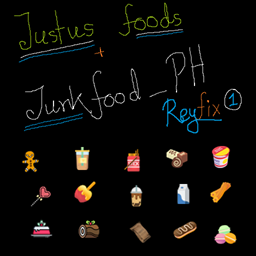 Justus foods
+
Junkfood_PH
Reyfix 1